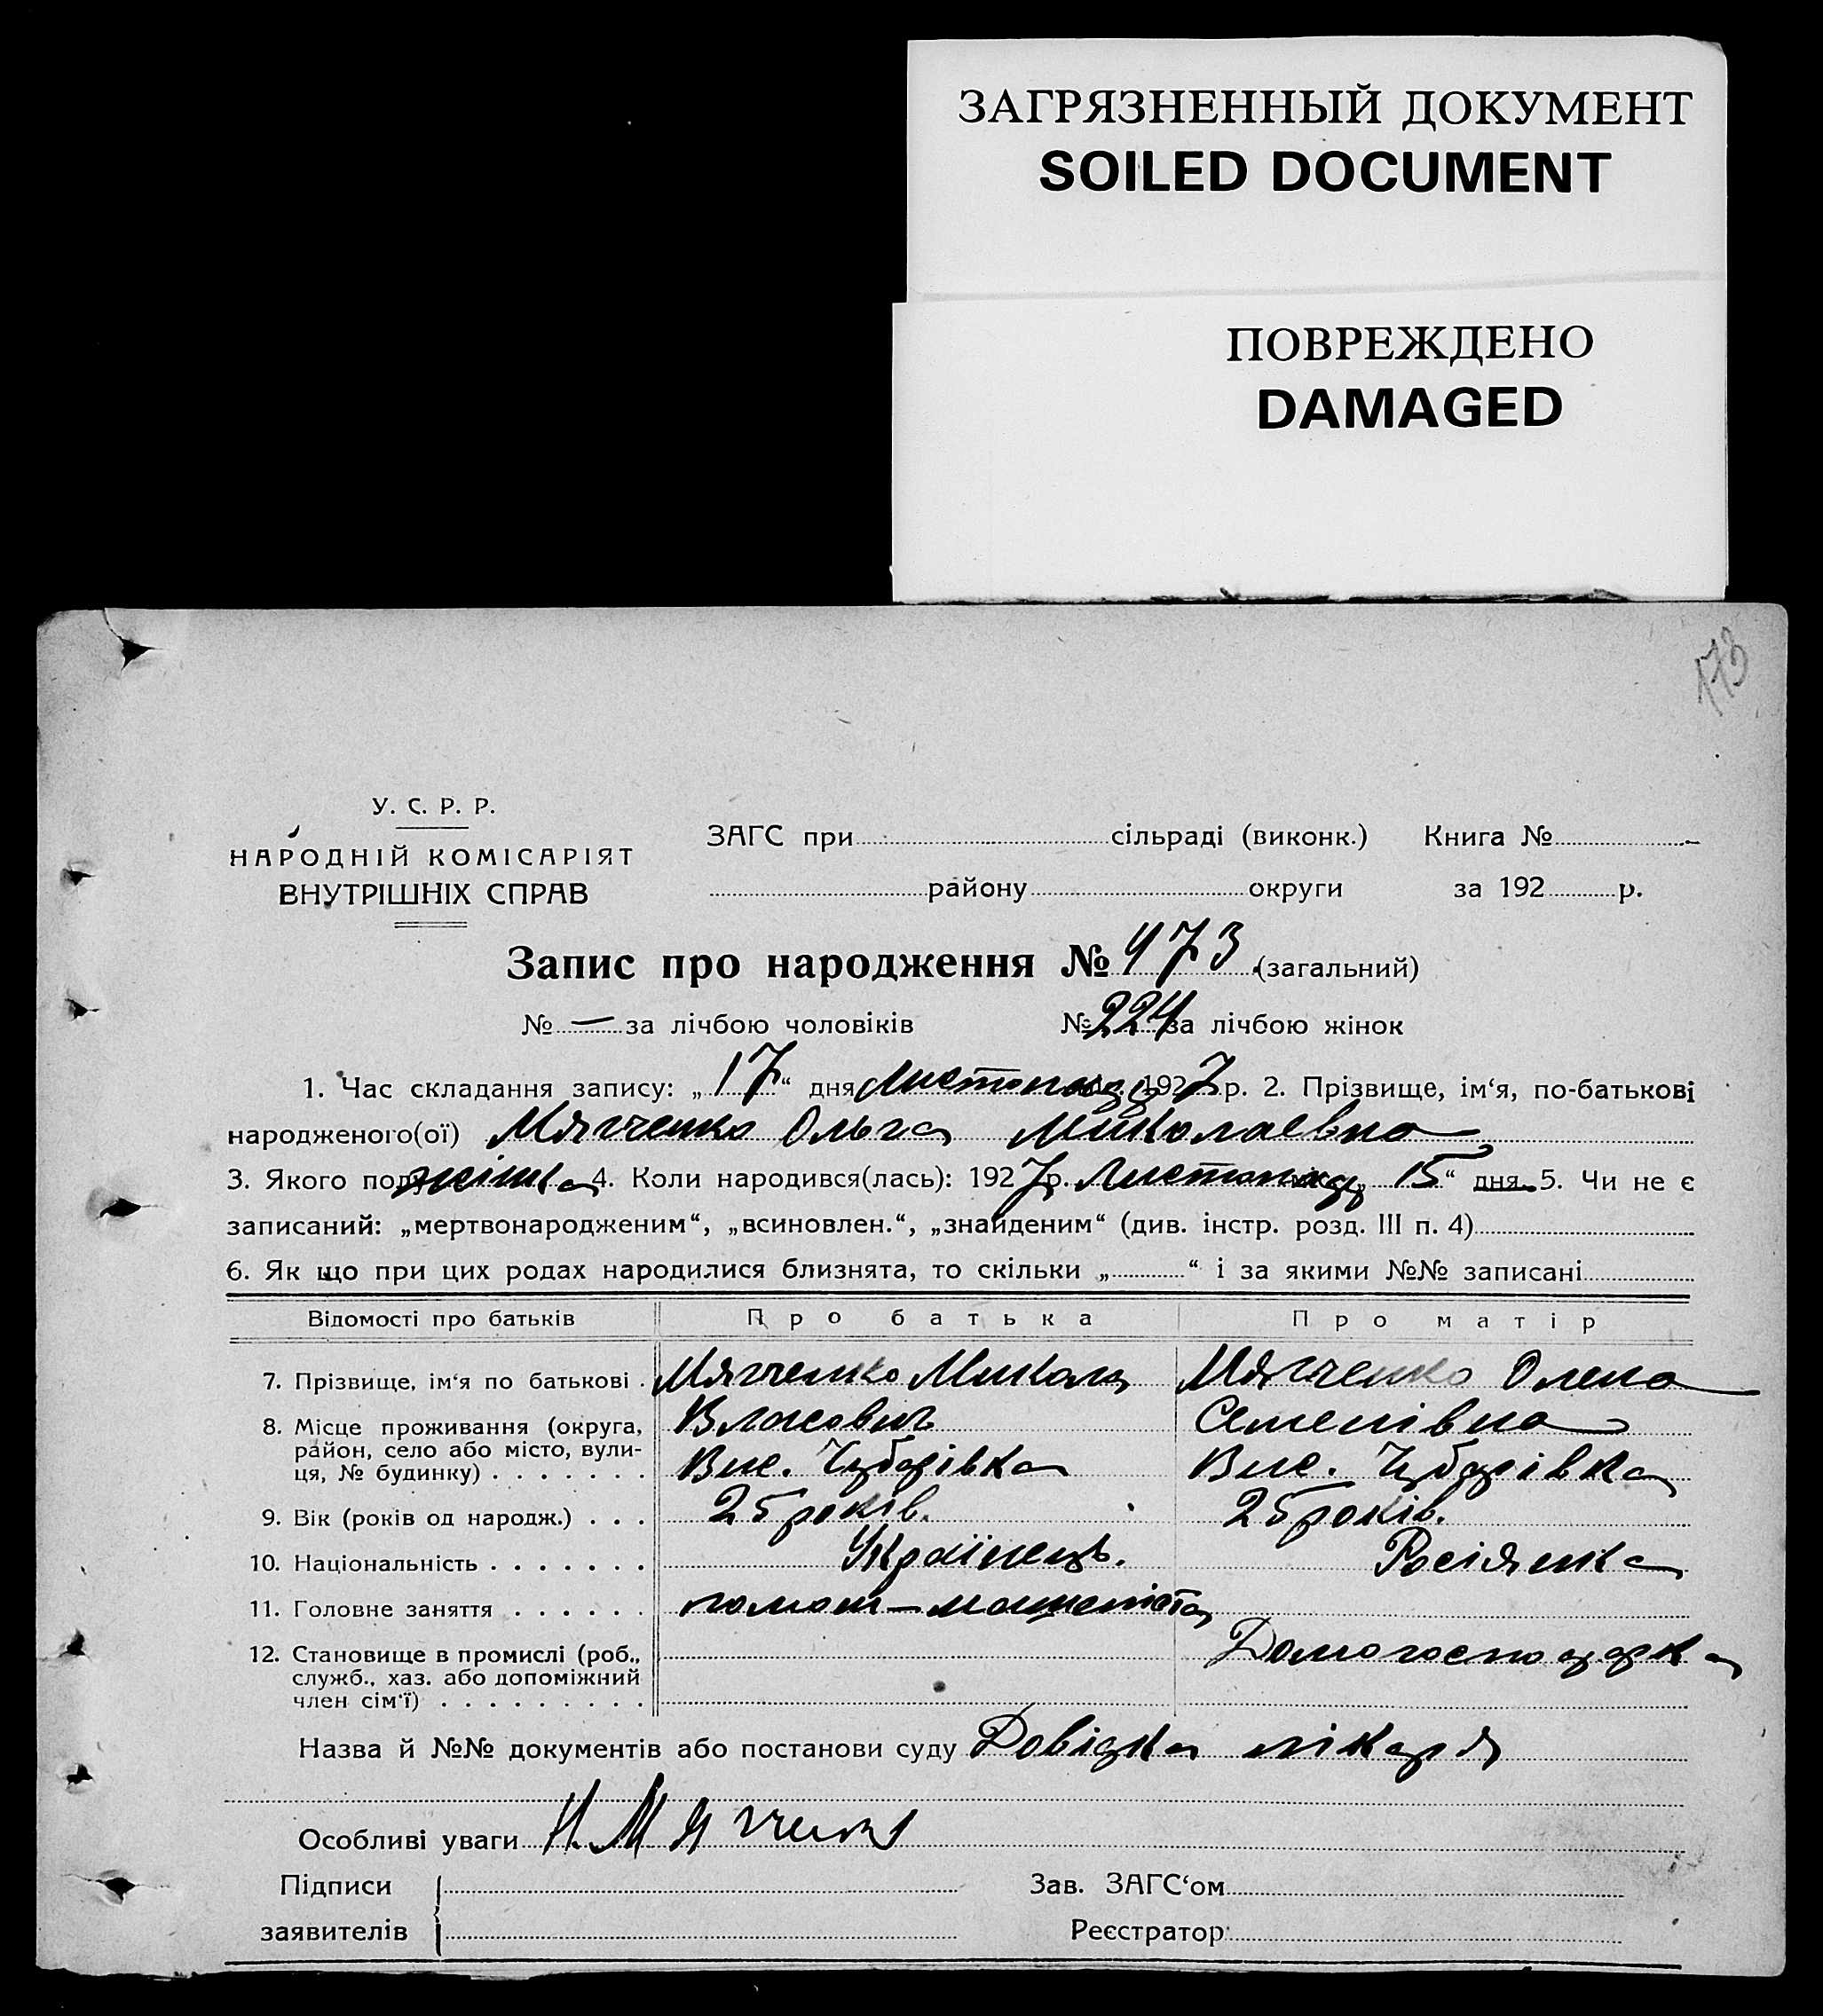 ЗАГРЯЗНЕННЫЙ ДОКУМЕНТ
SOILED DOCUMENT
ПОВРЕЖДЕНО
DAMAGED
173
У. С. Р. Р.
НАРОДНІЙ КОМІСАРІЯТ
ВНУТРІШНІХ СПРАВ
ЗАГС при сільраді (виконк.) Книга №
району округи за 192 р.
Запис про народження № 473 (загальний)
№ — за лічбою чоловіків № 224 за лічбою жінок
1. Час складання запису: „17“ дня Листопада 1927 р. 2. Прізвище, ім‘я, по-батькові
народженого(ої) Мягченко Ольга Миколаевна
3. Якого полу жінка 4. Коли народився(лась): 1927 р. Листопад „15“ дня 5. Чи не є
записаний: „мертвонародженим“, „всиновлен.“, „знайденим“ (див. інстр. розд. III п. 4)
6. Як що при цих родах народилися близнята, то скільки „ “ і за якими №№ записані
Відомості про батьків Про батька Про матір
7. Прізвище, ім‘я по батькові . Мягченко Микола Мягченко Олена
8. Місце проживання (округа, Власович Семенівна
район, село або місто, вули-
ця, № будинку) . . . . . . . Вис. Чубарівка Вис. Чубарівка
9. Вік (років од народж.) . . . 25 років. 25 років.
10. Національність . . . . . . . Українець. Росіянка
11. Головне заняття . . . . . . помош-машиніста
12. Становище в промислі (роб., Домогосподарка
служб., хаз. або допоміжний
член сім‘ї) . . . . . . . . .
Назва й №№ документів або постанови суду Довідка лікаря
Особливі уваги Н. Мягченко
Підписи Зав. ЗАГС‘ом
заявителів Реєстратор